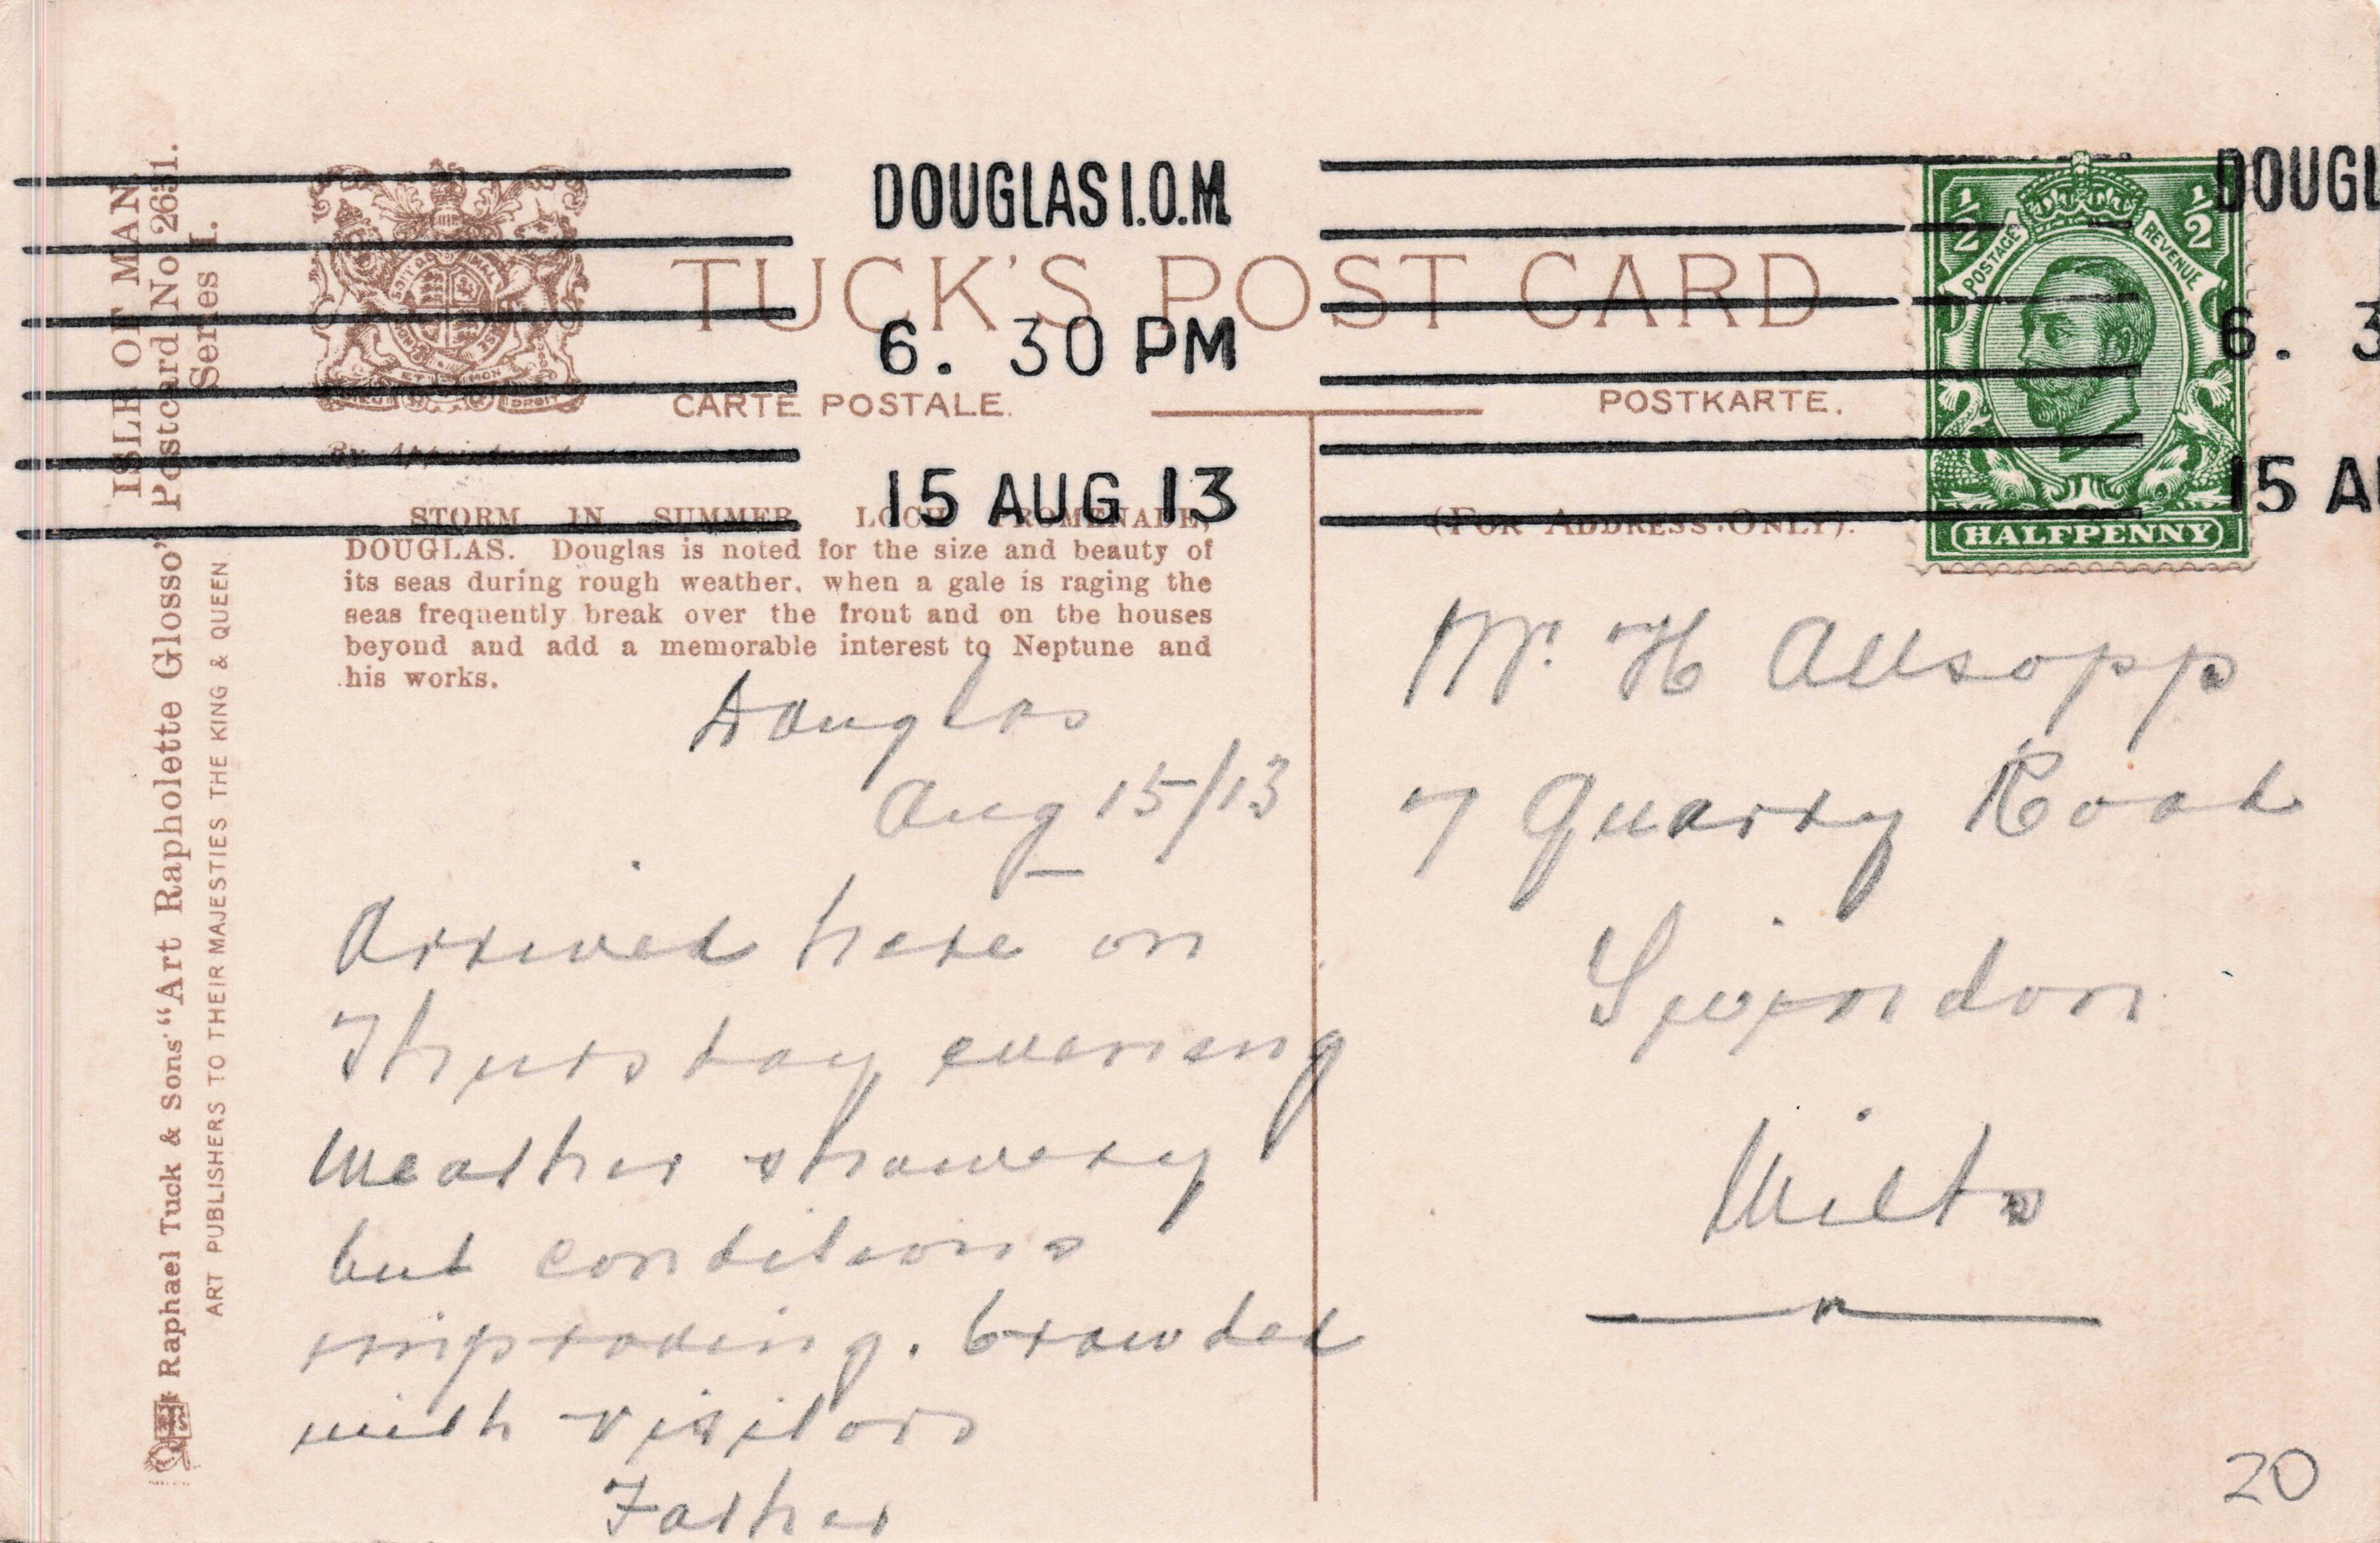 DOUGLAS I.O.M.
6. 30 PM
15 AUG 13
DOUGL
6. 3
15 AU
TUCK'S POST CARD
CARTE POSTALE.
POSTKARTE.
By Appointment
(FOR ADDRESS ONLY).
½ ½
POSTAGE REVENUE
HALFPENNY
ISLE OF MAN.
Postcard No. 2631.
Series I.
Raphael Tuck & Sons' "Art Rapholette Glosso"
ART PUBLISHERS TO THEIR MAJESTIES THE KING & QUEEN.
STORM IN SUMMER LOCH PROMENADE,
DOUGLAS. Douglas is noted for the size and beauty of
its seas during rough weather, when a gale is raging the
seas frequently break over the front and on the houses
beyond and add a memorable interest to Neptune and
his works.
Douglas
Aug 15/13
Arrived here on
Thursday evening
Weather showery
but conditions
improving. Crowded
with visitors
Father
Mr. H Allsopp
7 Quarry Road
Swindon
Wilts
20